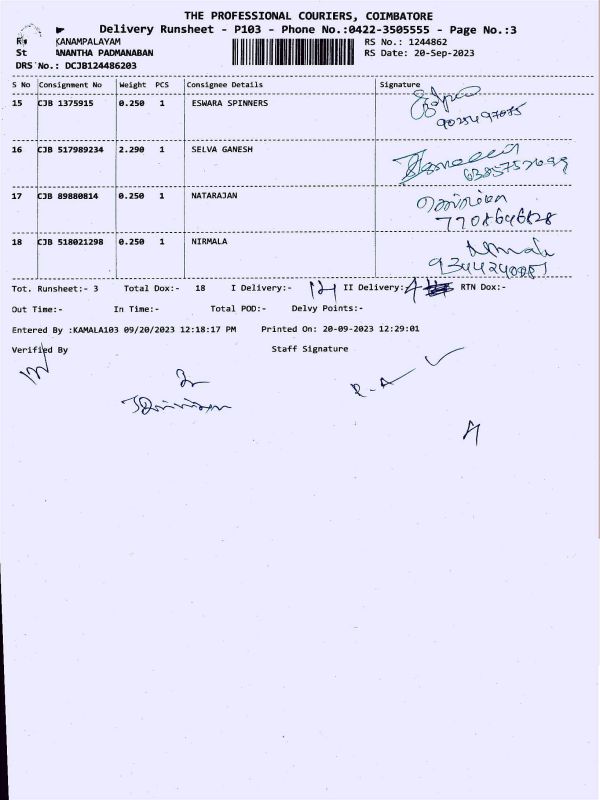 THE PROFESSIONAL COURIERS, COIMBATORE
Delivery Runsheet - P103 - Phone No.:0422-3505555 - Page No.:3
KANAMPALAYAM RS No.: 1244862
St ANANTHA PADMANABAN RS Date: 20-Sep-2023
DRS No.: DCJB124486203
S No Consignment No Weight PCS Consignee Details Signature
15 CJB 1375915 0.250 1 ESWARA SPINNERS
16 CJB 517989234 2.290 1 SELVA GANESH
17 CJB 89880814 0.250 1 NATARAJAN
7708646828
18 CJB 518021298 0.250 1 NIRMALA Nirmala
Tot. Runsheet:- 3 Total Dox:- 18 I Delivery:- 14 II Delivery:- 4 RTN Dox:-
Out Time:- In Time:- Total POD:- Delvy Points:-
Entered By :KAMALA103 09/20/2023 12:18:17 PM Printed On: 20-09-2023 12:29:01
Verified By Staff Signature